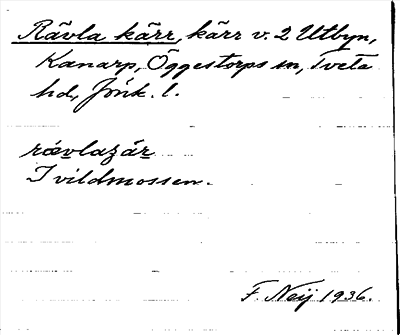 Rävla kärr, kärr v. 2 Utbyn,
Kanarp, Öggestorps sn, Tveta
hd, Jönk. l.
rævlaʒár
I vildmossen.
F. Neij 1936.